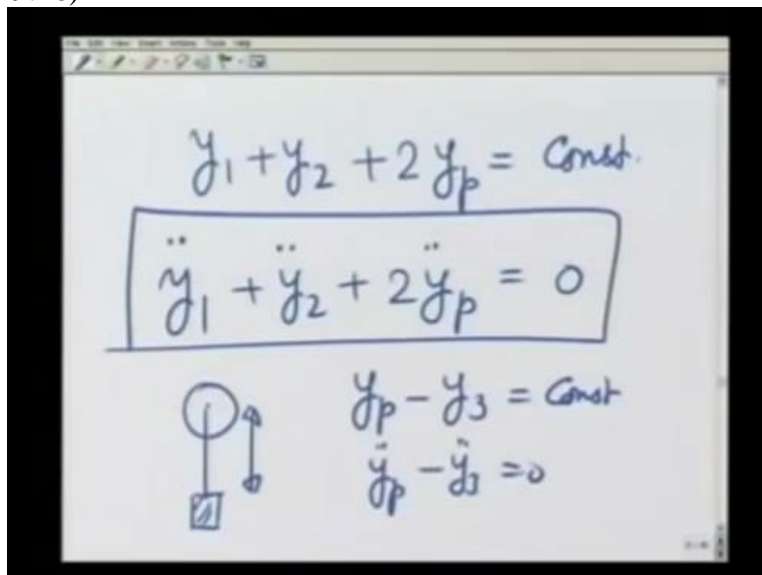 File Edit View Insert Actions Tools Help
y₁ + y₂ + 2y_p = Const.
ÿ₁ + ÿ₂ + 2ÿ_p = 0
y_p − y₃ = Const
ÿ_p − ÿ₃ = 0